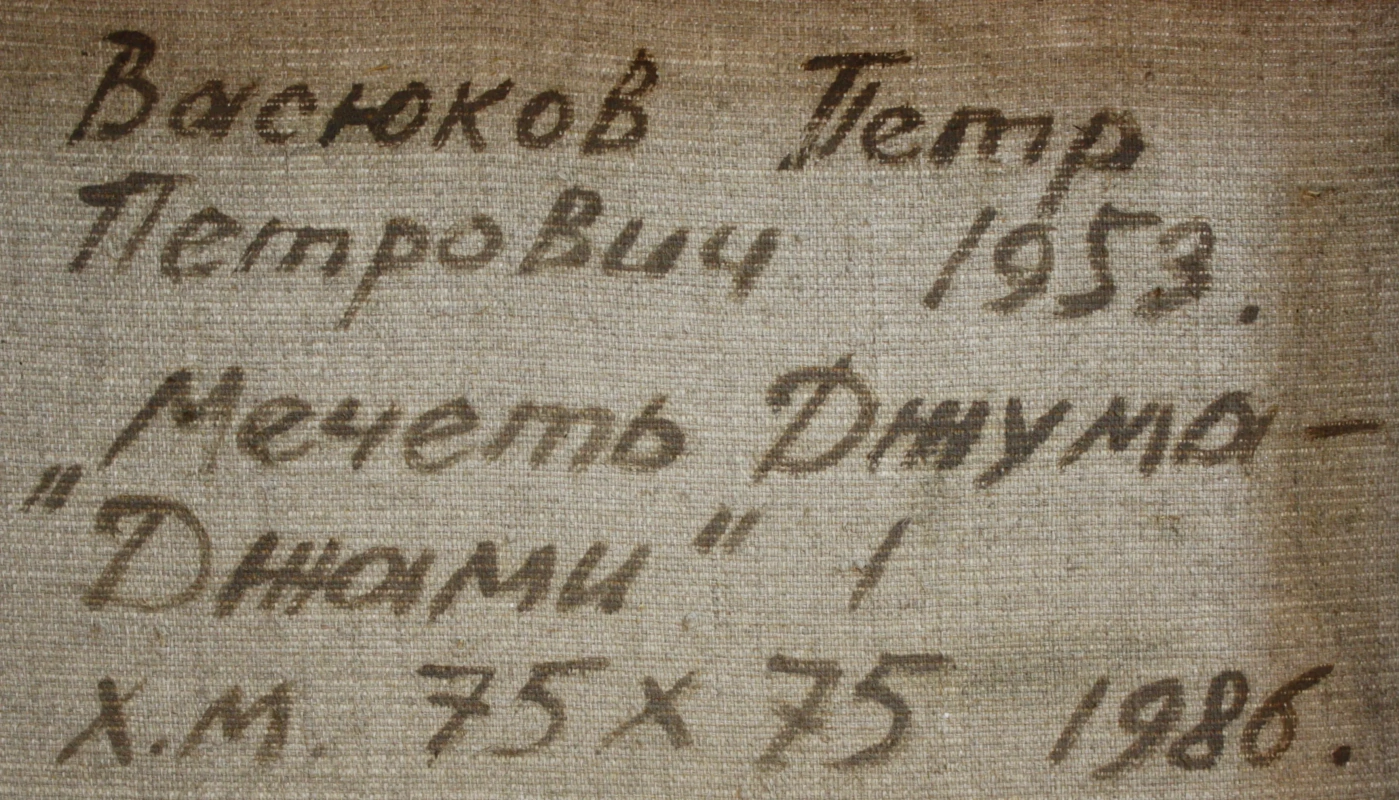 Васюков Петр
Петрович 1953.
Мечеть Джума -
"Джами" 1
х.м. 75 х 75 1986.